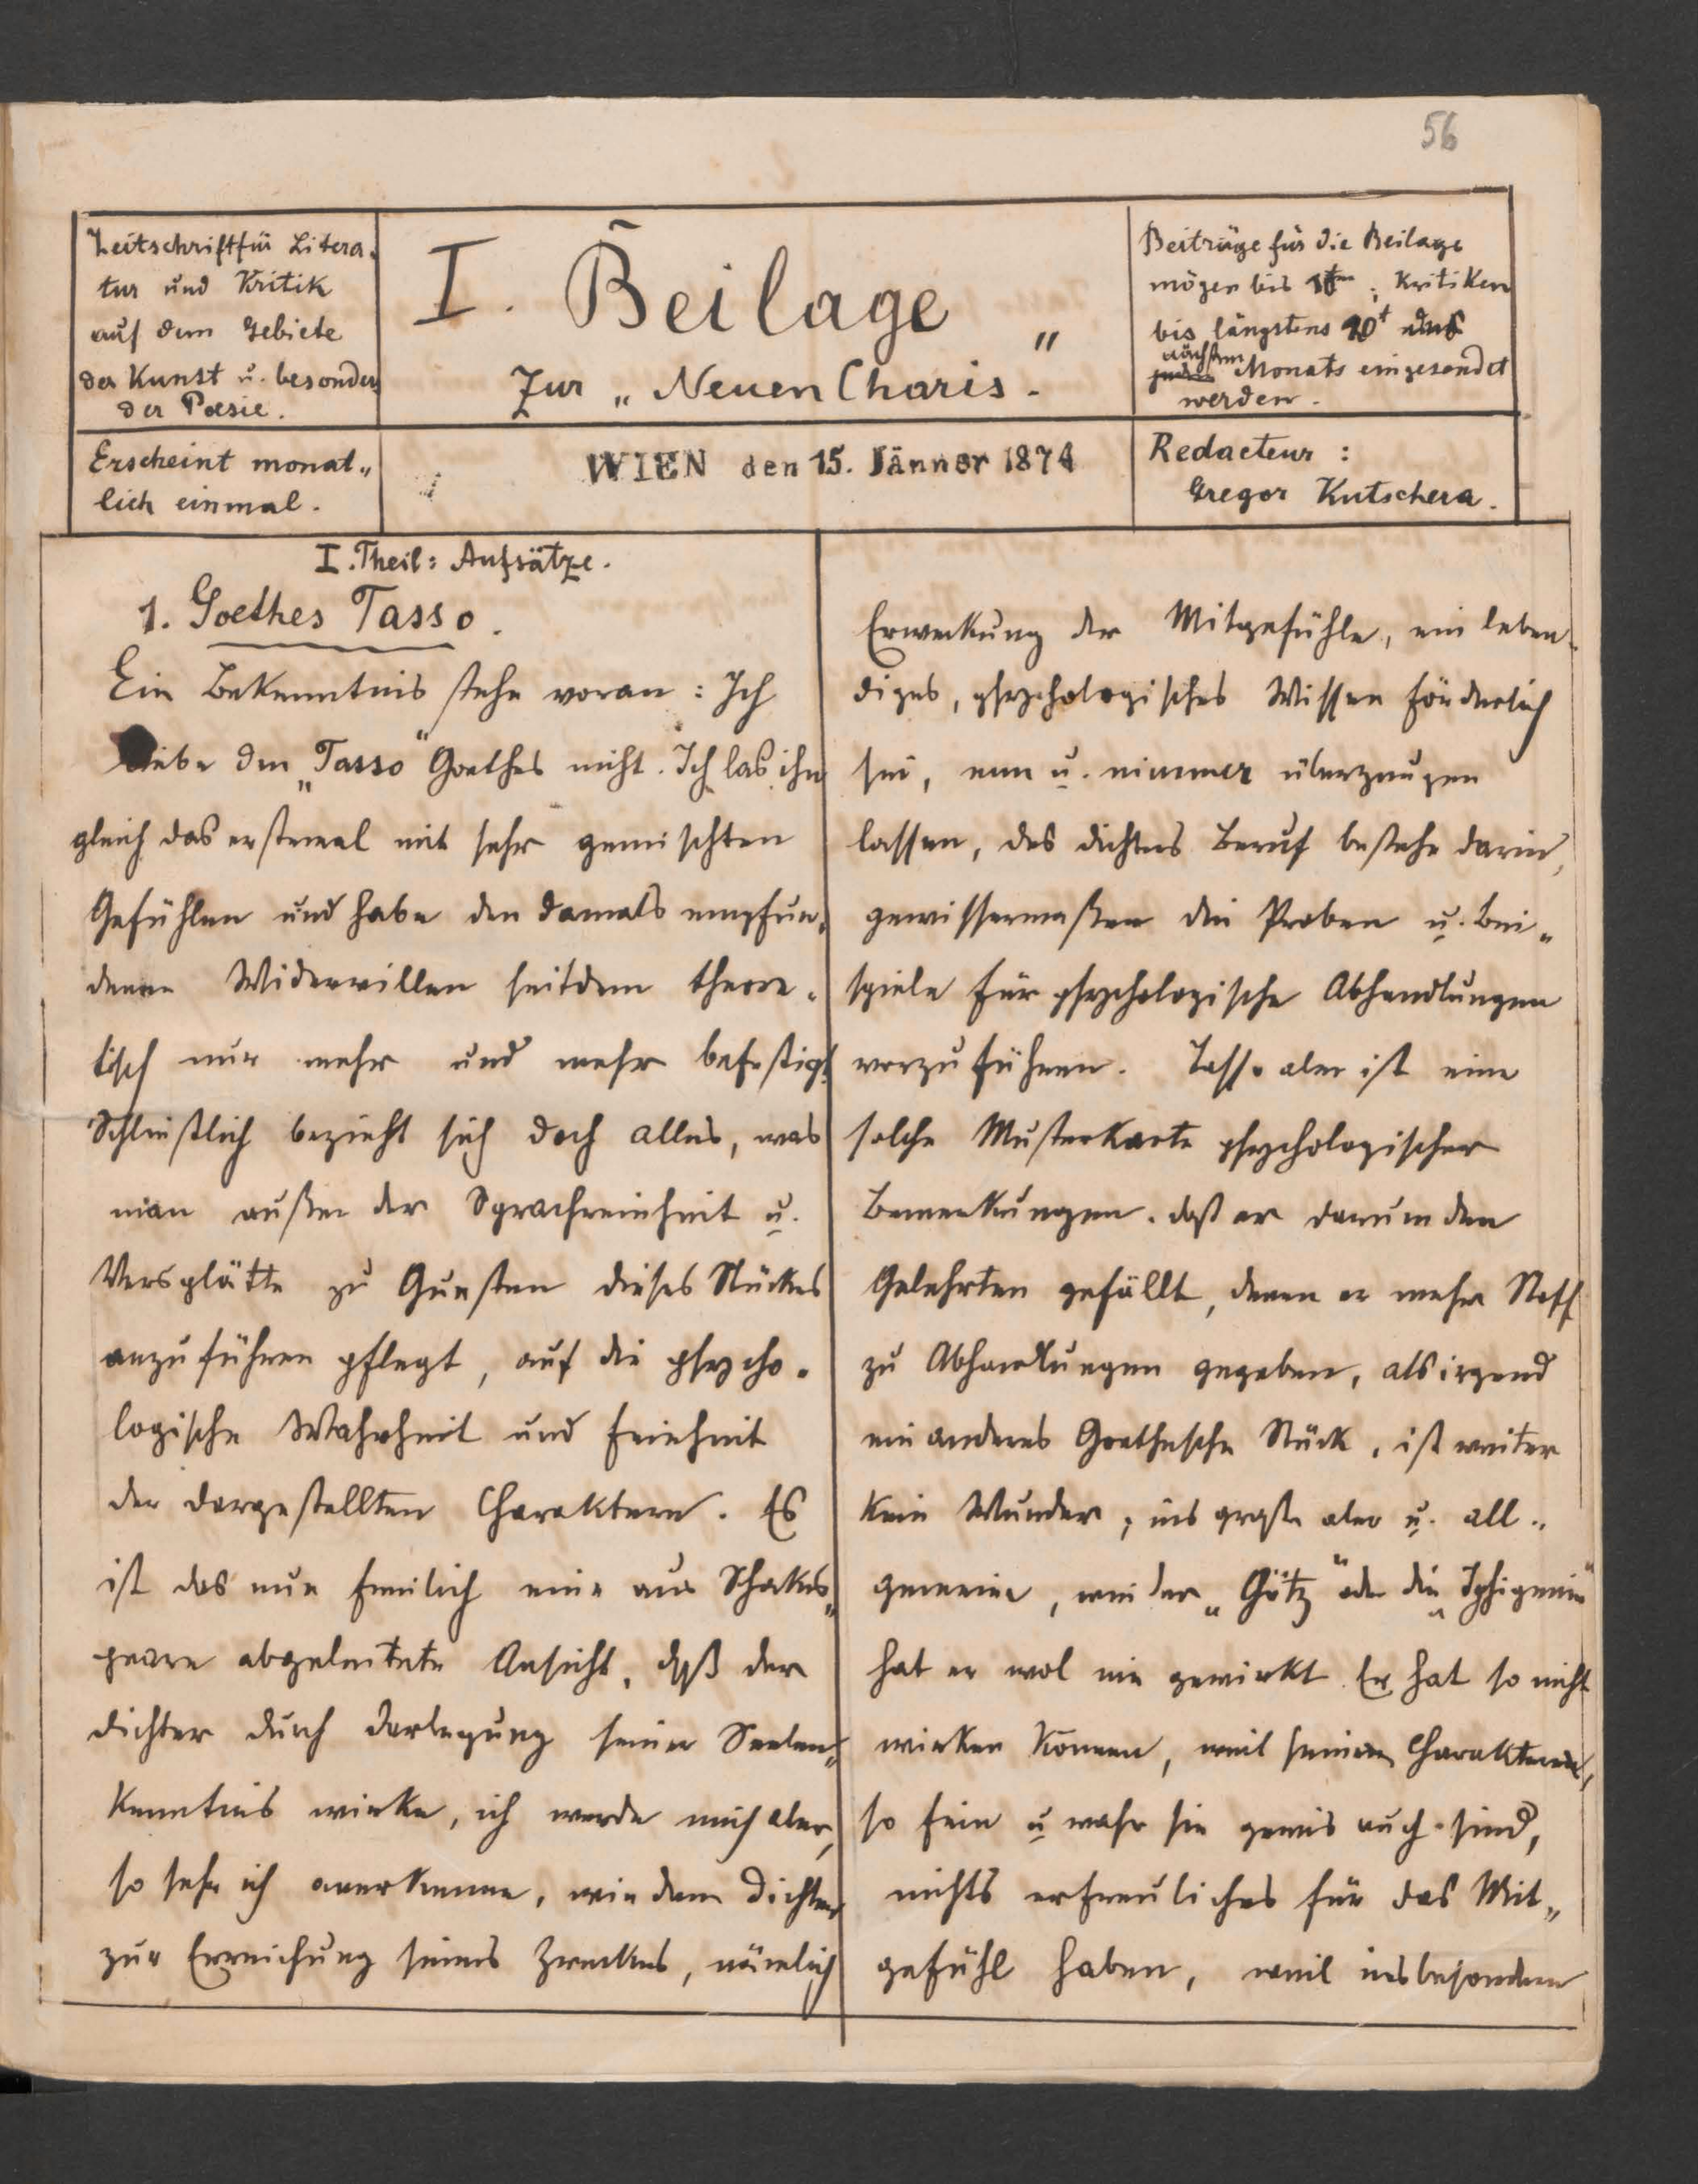 56
Zeitschrift für Litera-
tur und Kritik
auf dem Gebiete
der Kunst u. besonders
der Poesie.
I. Beilage
Zur „Neuen Charis."
Beiträge für die Beilage
mögen bis ; Kritiken
bis längstens
nächsten Monats eingesendet
werden.
Erscheint monat„
lich einmal.
WIEN den 15. Jänner 1874
Redacteur:
Gregor Kutschera.
I. Theil: Aufsätze.
1. Goethes Tasso.
Ein Bekenntnis stehe voran: Ich
liebe den „Tasso" Goethes nicht. Ich las ihn
gleich das erstemal mit sehr gemischten
Gefühlen und habe den damals empfun„
denen Widerwillen seitdem theore„
tisch nur mehr und mehr befestigt.
Schließlich bezieht sich doch alles, was
man außer der Sprachreinheit u.
Versglätte zu Gunsten dieses Stückes
anzuführen pflegt, auf die psycho„
logische Wahrheit und Feinheit
der dargestellten Charaktere. Es
ist das nun freilich eine aus Schakes„
peare abgeleitete Ansicht, daß der
Dichter durch Darlegung seiner Seelen„
kenntnis wirke, ich werde mich aber,
so sehr ich anerkenne, wie dem Dichter
zur Erreichung seines Zweckes, nämlich
Erweckung der Mitgefühle, ein leben„
diges, psychologisches Wissen förderlich
sei, nun u. nimmer überzeugen
lassen, des Dichters Beruf bestehe darin,
gewissermaßen die Proben u. Bei„
spiele für psychologische Abhandlungen
vorzuführen. Tasso aber ist eine
solche Musterkarte psychologischer
Bemerkungen. daß er darum den
Gelehrten gefällt, denen er mehr Stoff
zu Abhandlungen gegeben, als irgend
ein anderes Goethesche Stück, ist weiter
kein Wunder; ins große aber u. all„
gemeine, wie der „Götz" oder die „Iphigenie"
hat er wol nie gewirkt. Er hat so nicht
wirken können, weil seine Charaktere,
so fein u wahr sie gewis auch sind,
nichts erfreuliches für das Mit„
gefühl haben, weil insbesondere